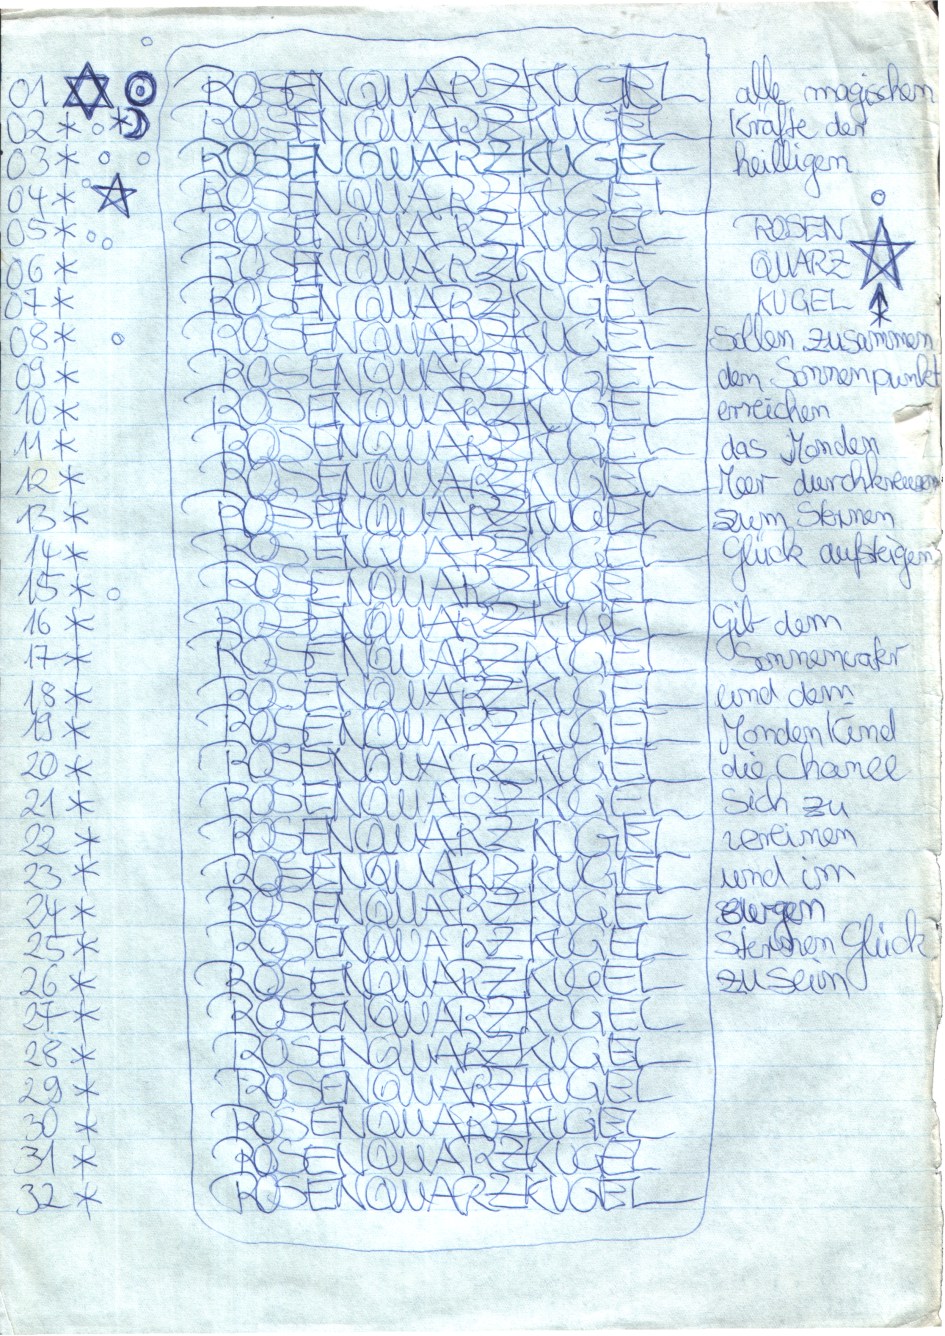 01 ROSENQUARZKUGEL alle magischen
02 * ROSENQUARZKUGEL Kräfte der
03 * ROSENQUARZKUGEL heilligen
04 * ROSENQUARZKUGEL
05 * ROSENQUARZKUGEL ROSEN
06 * ROSENQUARZKUGEL QUARZ
07 * ROSENQUARZKUGEL KUGEL
08 * ROSENQUARZKUGEL sollen zusammen
09 * ROSENQUARZKUGEL den Sonnenpunkt
10 * ROSENQUARZKUGEL erreichen
11 * ROSENQUARZKUGEL das Monden
12 * ROSENQUARZKUGEL Meer
13 * ROSENQUARZKUGEL zum Sternen
14 * ROSENQUARZKUGEL Glück aufsteigen
15 * ROSENQUARZKUGEL
16 * ROSENQUARZKUGEL Gib dem
17 * ROSENQUARZKUGEL
18 * ROSENQUARZKUGEL und dem
19 * ROSENQUARZKUGEL MondenKind
20 * ROSENQUARZKUGEL die Chance
21 * ROSENQUARZKUGEL Sich zu
22 * ROSENQUARZKUGEL vereinen
23 * ROSENQUARZKUGEL und im
24 * ROSENQUARZKUGEL
25 * ROSENQUARZKUGEL Sternen Glück
26 * ROSENQUARZKUGEL zu Sein
27 * ROSENQUARZKUGEL
28 * ROSENQUARZKUGEL
29 * ROSENQUARZKUGEL
30 * ROSENQUARZKUGEL
31 * ROSENQUARZKUGEL
32 * ROSENQUARZKUGEL